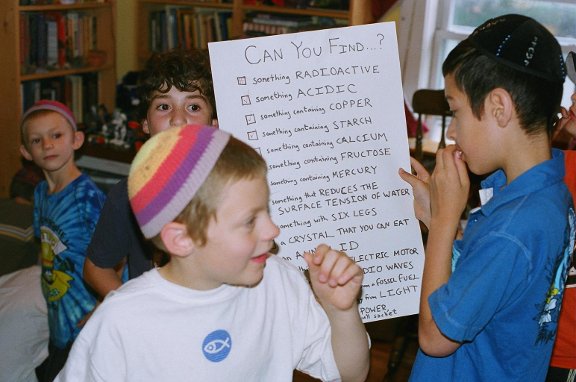 CAN YOU FIND...?
something RADIOACTIVE
something ACIDIC
something containing COPPER
something containing STARCH
something containing CALCIUM
something containing FRUCTOSE
something containing MERCURY
something that REDUCES THE
SURFACE TENSION OF WATER
something with SIX LEGS
a CRYSTAL THAT YOU CAN EAT
ID
ELECTRIC MOTOR
WAVES
from a FOSSIL FUEL
from LIGHT
POWER,
socket